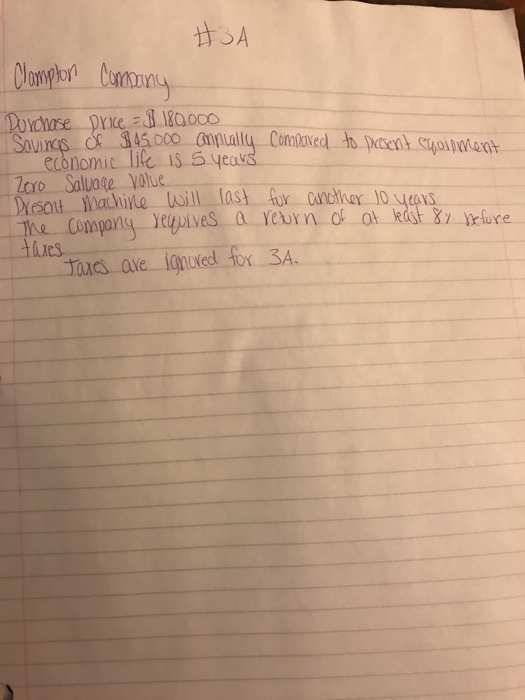 #3A
Clampton Company
Purchase price = $180,000
Savings of $45,000 annually compared to present equipment
economic life is 5 years
Zero Salvage value
Present machine will last for another 10 years
The company requires a return of at least 8% before
taxes
Taxes are ignored for 3A.